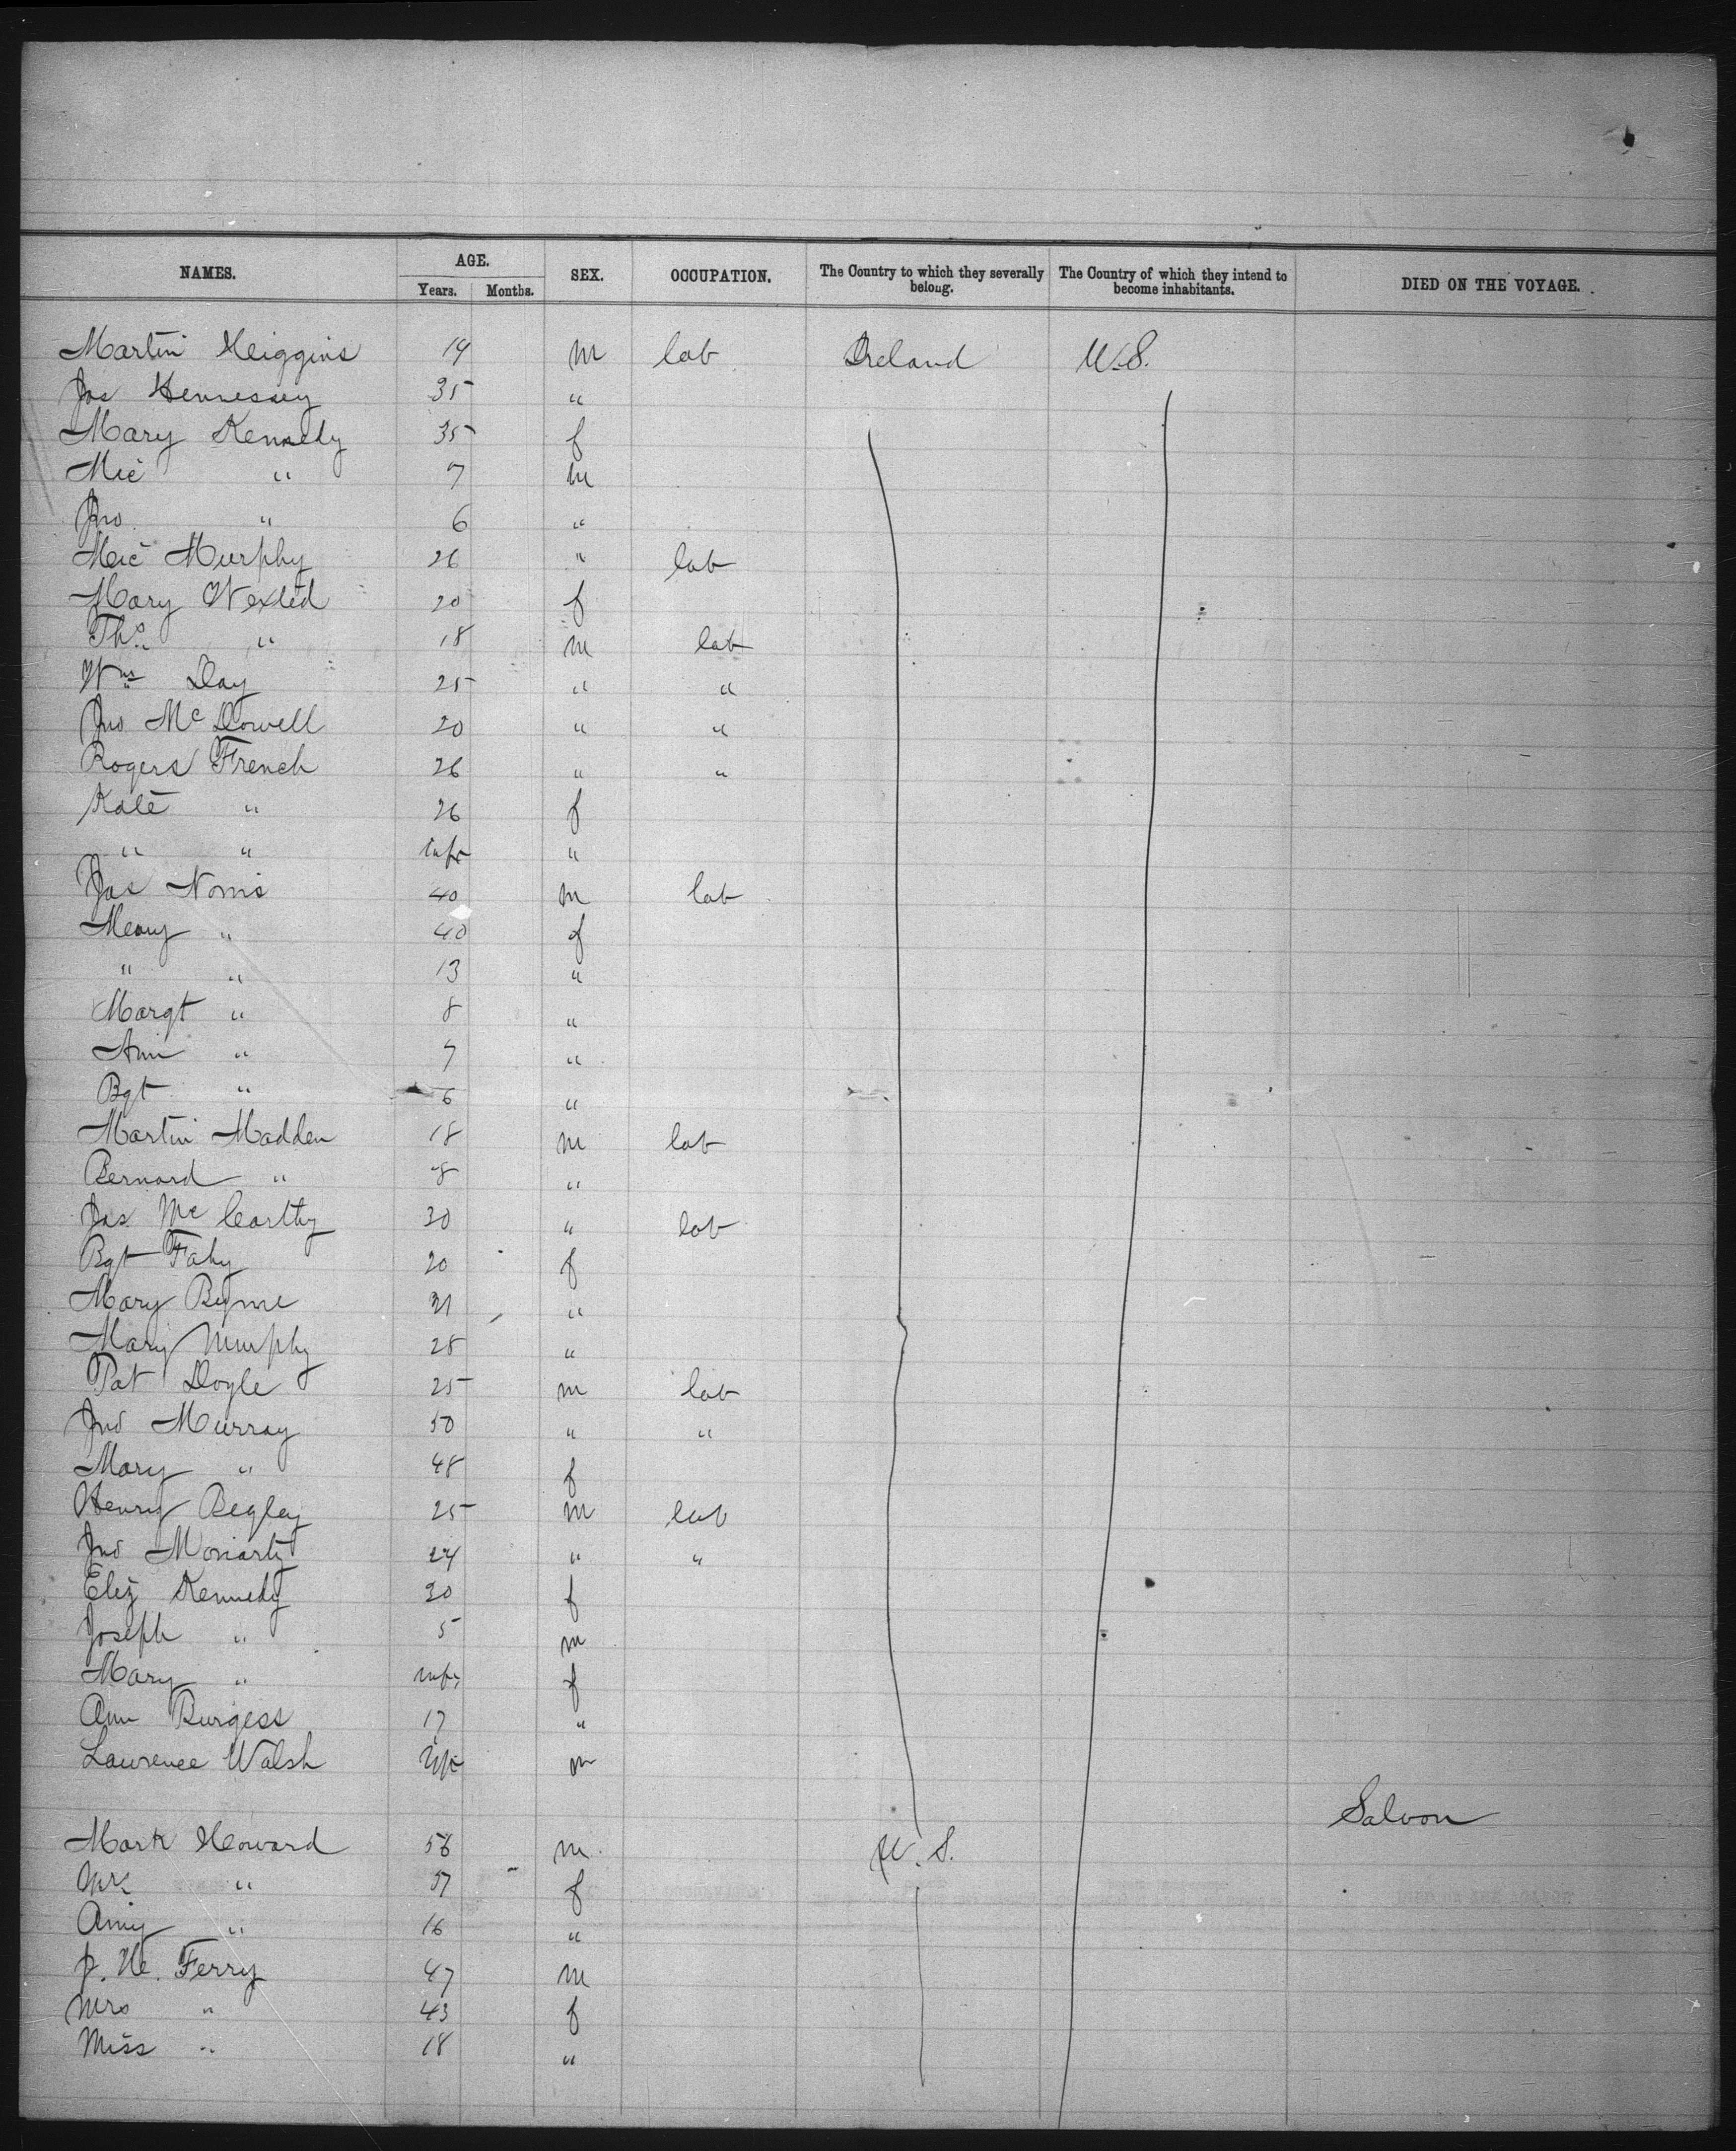 NAMES. AGE. SEX. OCCUPATION. The Country to which they severally belong. The Country of which they intend to become inhabitants. DIED ON THE VOYAGE.
Years. Months.
Martin Heiggins 19 m lab Ireland U.S.
Jas Hennessey 35 "
Mary Kennedy 35 f
Mic " 7 m
Jno " 6 "
Mic Murphy 26 " lab
Mary Wexted 20 f
Thos " 18 m lab
Wm Day 25 " "
Jno McDowell 20 " "
Rogers French 26 " "
Kate " 26 f
" " infr "
Jas Norris 40 m lab
Meary " 40 f
" " 13 "
Margt " 8 "
Ann " 7 "
Bgt " 6 "
Martin Madden 18 m lab
Bernard " 8 "
Jas McCarthy 30 " lab
Bgt Fahy 20 f
Mary Byrne 21 "
Mary Murphy 28 "
Pat Doyle 25 m lab
Jno Murray 50 " "
Mary " 48 f
Henry Begley 25 m lab
Jno Moriarty 24 " "
Eliz Kennedy 30 f
Joseph " 5 m
Mary " infr f
Ann Burgess 17 "
Lawrence Walsh m
Saloon
Mark Howard 56 m U.S.
Mrs " 57 f
Amy " 16 "
J. H. Ferry 47 m
Mrs " 43 f
Miss " 18 "